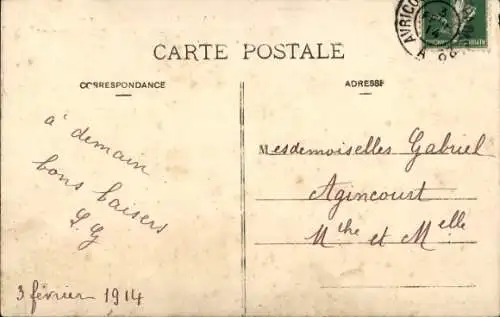 AVRICO
CARTE POSTALE
CORRESPONDANCE
ADRESSE
à demain
bons baisers
L. G
3 février 1914
Mesdemoiselles Gabriel
Agincourt
Mthe et Melle